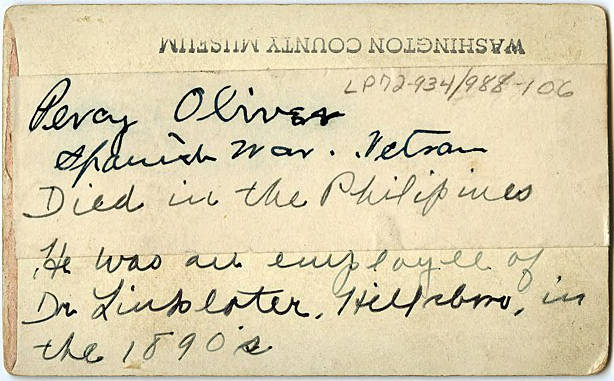 WASHINGTON COUNTY MUSEUM
LP72-934/988-106
Percy Oliver
Spanish War. Vetran
Died in the Philipines
He was an employee of
Dr Linklater, Hillsboro, in
the 1890's